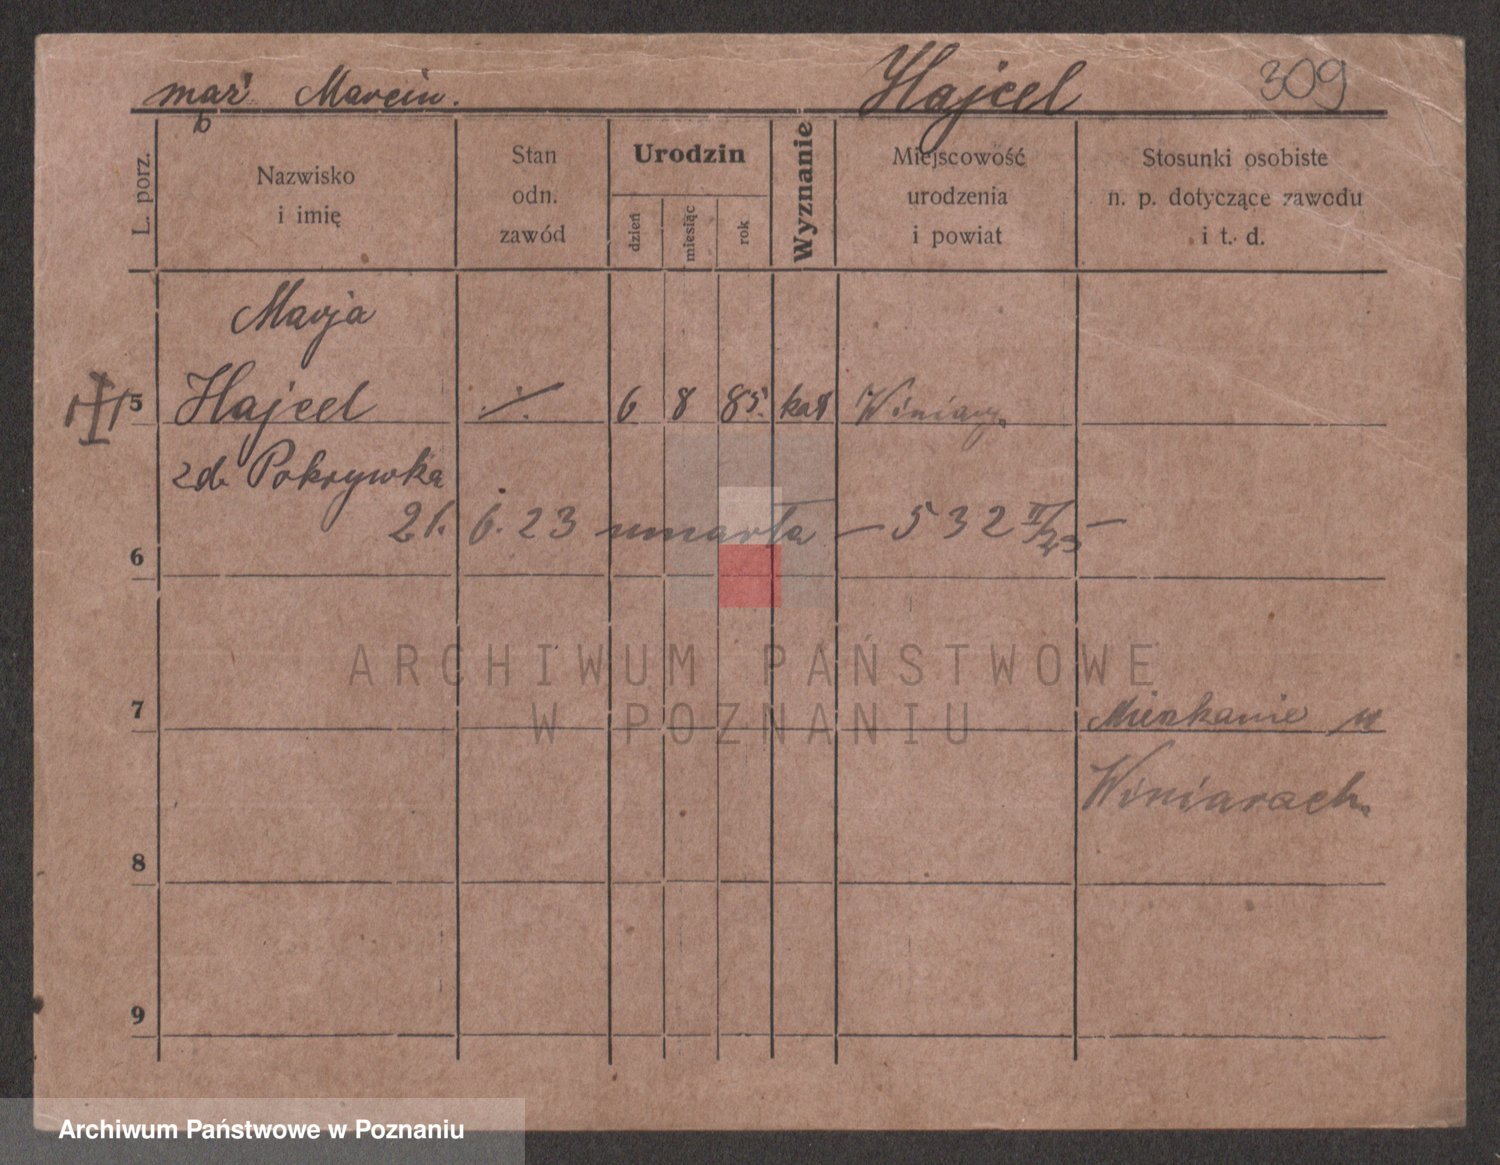 mąż Marcin. Hajcel 309
L. porz.
Nazwisko
i imię
Stan
odn.
zawód
Urodzin
dzień
miesiąc
rok
Wyznanie
Miejscowość
urodzenia
i powiat
Stosunki osobiste
n. p. dotyczące zawodu
i t. d.
Marja
5 Hajcel ·/. 6 8 85. kat Winiary.
zd. Pokrywka
21. 6. 23 umarła — 532 II/23 —
6
ARCHIWUM PAŃSTWOWE
W POZNANIU
7 Mieszkanie w
Winiarach.
8
9
Archiwum Państwowe w Poznaniu